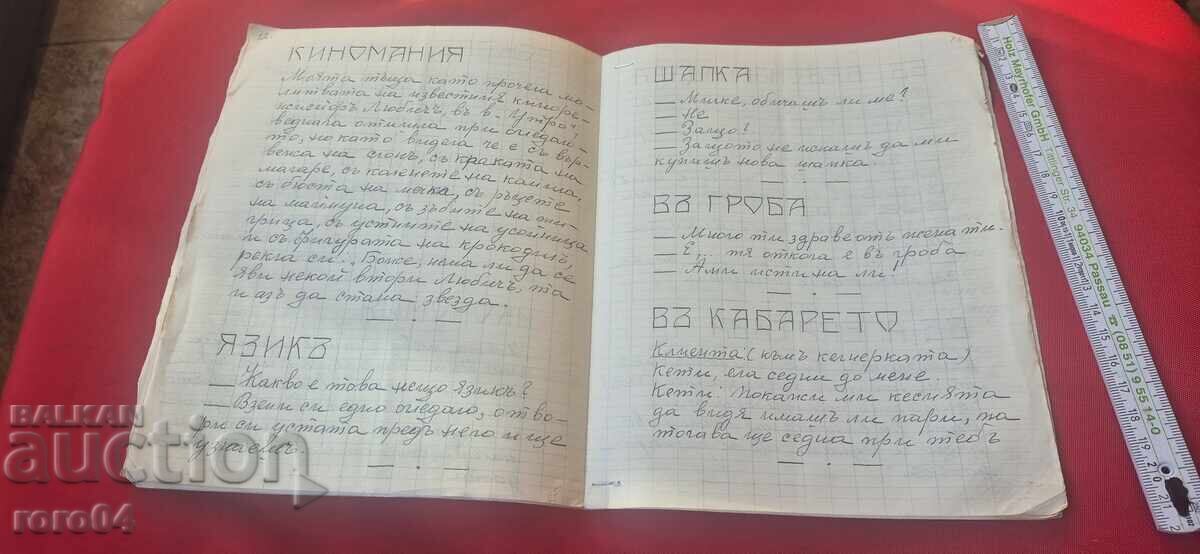 12
КИНОМАНИЯ
Моята тъща като прочела мо-
литвата на известния кинаре-
жисьоръ Любичъ, въ в. Утро,
веднага отишла при огледало-
то, но като видяла че е съ вър-
вежа на слонъ, съ краката на
магаре, съ коленете на камила,
съ бюста на мечка, съ ръцете
на маймуна, съ зъбите на ти-
грица, съ устните на усойница
и съ фигурата на крокодилъ,
рекла си: Боже, нема ли да се
яви некой втори Любичъ, та
и азъ да стана звезда.
ЯЗИКЪ
— Какво е това нещо язикъ?
— Вземи си едно огледало, отво-
ри си устата предъ него и ще
узнаешъ.
ШАПКА
— Милке, обичашъ ли ме?
— Не
— Защо?
— Защото не искашъ да ми
купишъ нова шапка.
ВЪ ГРОБА
— Много ти здраве отъ жена ти.
— Е, тя откога е въ гроба
— Ами истина ли!
ВЪ КАБАРЕТО
Клиента: (към келнерката)
Кети, ела седни до мене.
Кети: Покажи ми кесията
да видя имашъ ли пари, па
тогава ще седна при тебъ
BALKAN
auction
roro04
Holz Mayrhofer GmbH
Tittlinger Str. 34
94034 Passau
☎ (08 51) 9 55 14-0